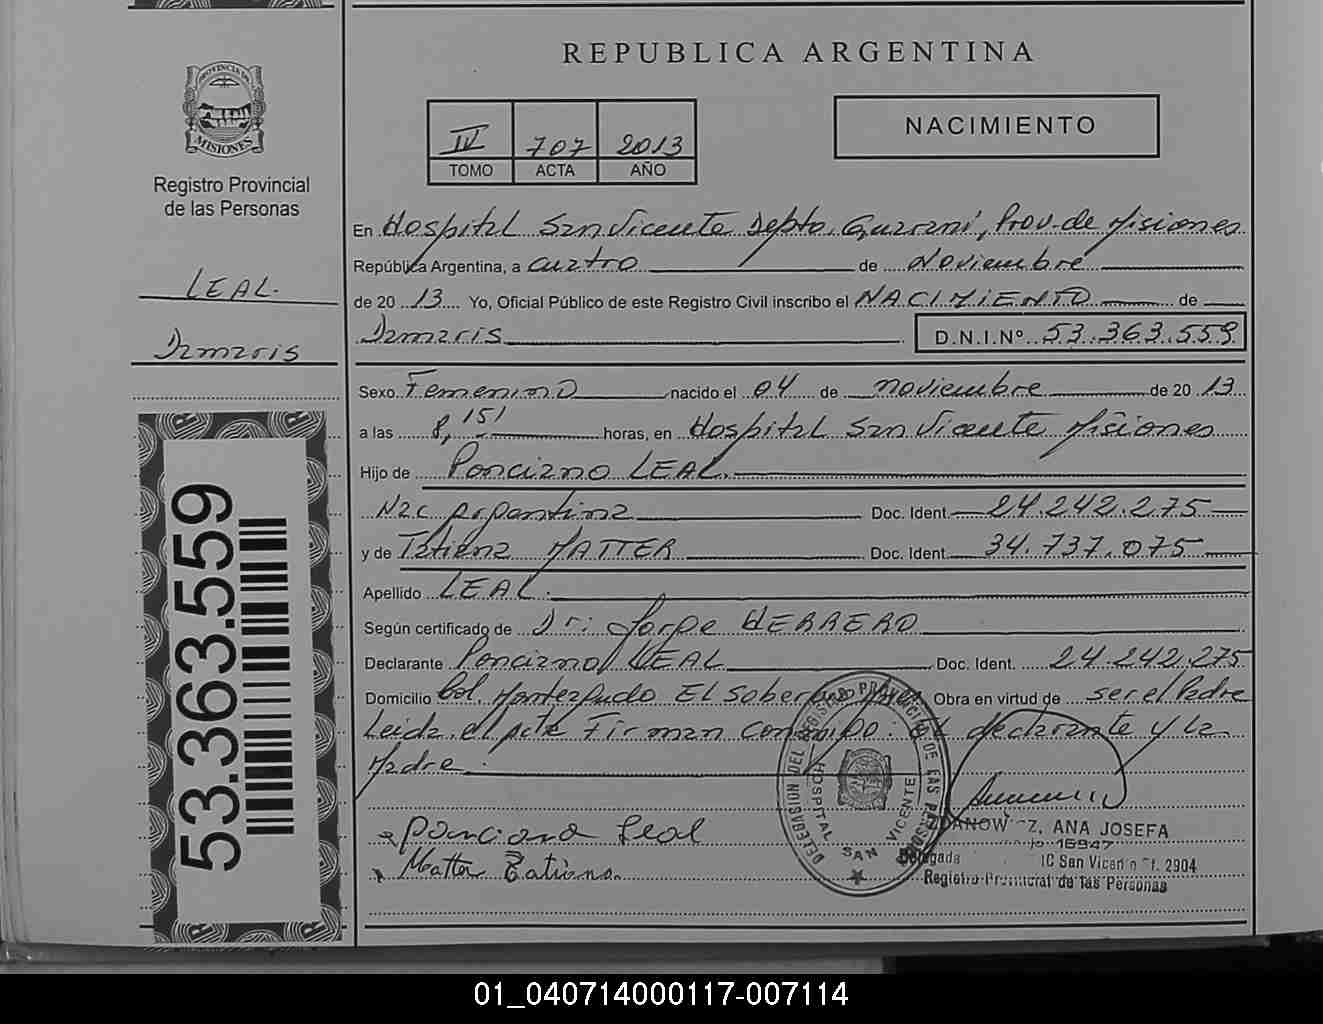 REPUBLICA ARGENTINA
PROVINCIA DE
MISIONES
Registro Provincial
de las Personas
IV 707 2013
TOMO ACTA AÑO
NACIMIENTO
LEAL.
Damaris
En Hospital San Vicente Depto. Guaraní, Prov. de Misiones
República Argentina, a cuatro de Noviembre
de 2013 Yo, Oficial Público de este Registro Civil inscribo el NACIMIENTO de
Damaris D.N.I.Nº 53.363.559
Sexo Femenino nacido el 04 de noviembre de 2013
a las 8,15' horas, en Hospital San Vicente Misiones
Hijo de Ponciano LEAL.
Nac Argentina Doc. Ident. 24.242.275
y de Tatiana MATTER Doc. Ident. 34.737.075
Apellido LEAL.
Según certificado de Dr: Jorge HERRERO
Declarante Ponciano LEAL Doc. Ident. 24.242.275
Domicilio Col. Monteagudo El Soberbio Mnes Obra en virtud de ser el Padre
Leida el Acta Firman conmigo: El declarante y la
Madre.
Ponciano Leal
Matter Tatiana.
DELEGACION DEL REGISTRO PROVINCIAL DE LAS PERSONAS
HOSPITAL SAN VICENTE
ANA JOSEFA
16947
Delegada
San Vicente 2904
Registro Provincial de las Personas
53.363.559
01_040714000117-007114